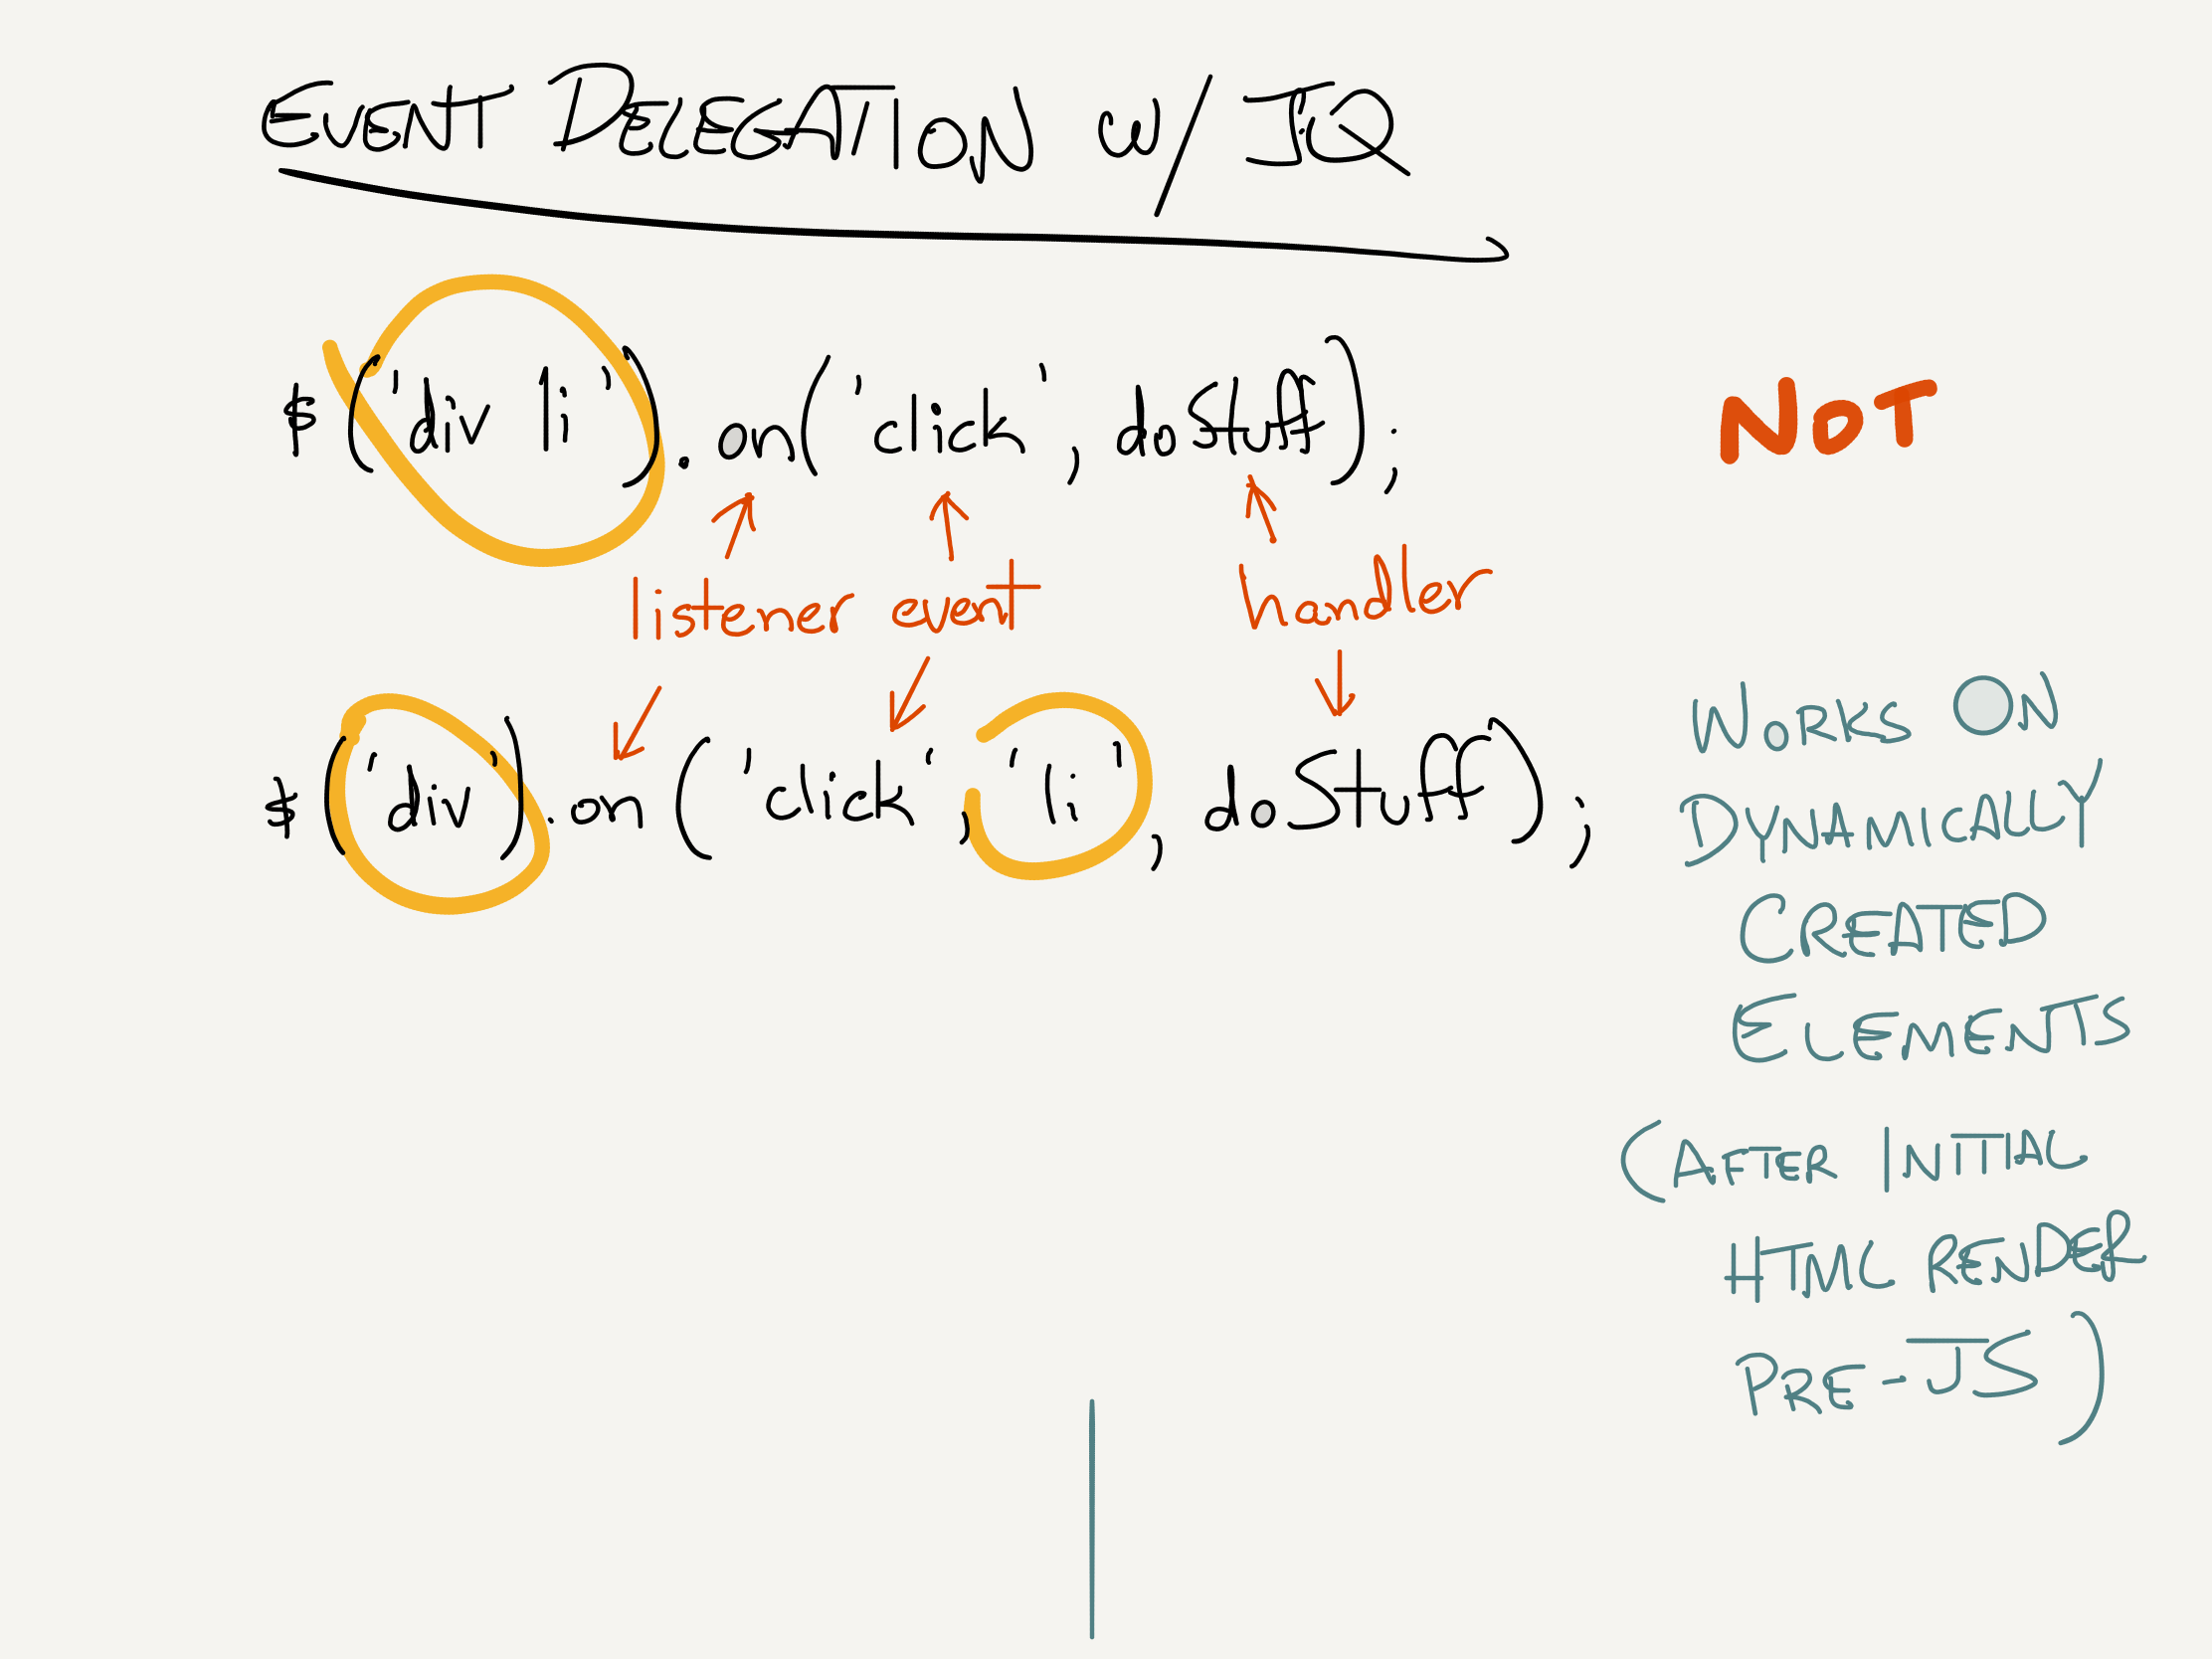 EVENT DELEGATION w/ JQ
$('div li').on('click', doStuff); NOT
listener event handler
$('div').on('click', 'li', doStuff);
WORKS ON
DYNAMICALLY
CREATED
ELEMENTS
(AFTER INITIAL
HTML RENDER
PRE-JS)